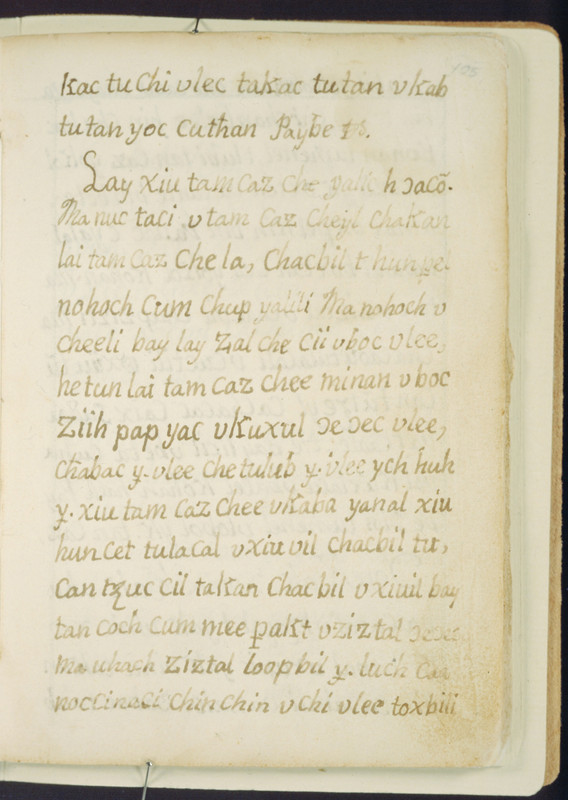 kac tu chi vlec takac tutan v kab
tutan yoc cuthan Paybe
Lay xiu tam caz che yalic h ɔacō.
Ma nuc taci v tam caz cheyl chakan
lai tam caz che la, chacbil t hun pel
nohoch cum chup yalili Ma nohoch v
cheeli bay lay zal che cii v boc vlee,
hetun lai tam caz chee minan v boc
ziih pap yac v kuxul ɔeɔec vlee,
chabac y. vlee chetulub y. vlee ych huh
y. xiu tam caz chee v kaba yanal xiu
huncet tulacal v xiu vil chacbil tu,
can tzuc cil takan chacbil v xiuil bay
tan coch cum mee pakt v ziztal ɔeɔec
Ma uhach ziztal loopbil y. luch
noccinaci chin chin v chi vlee toxbili